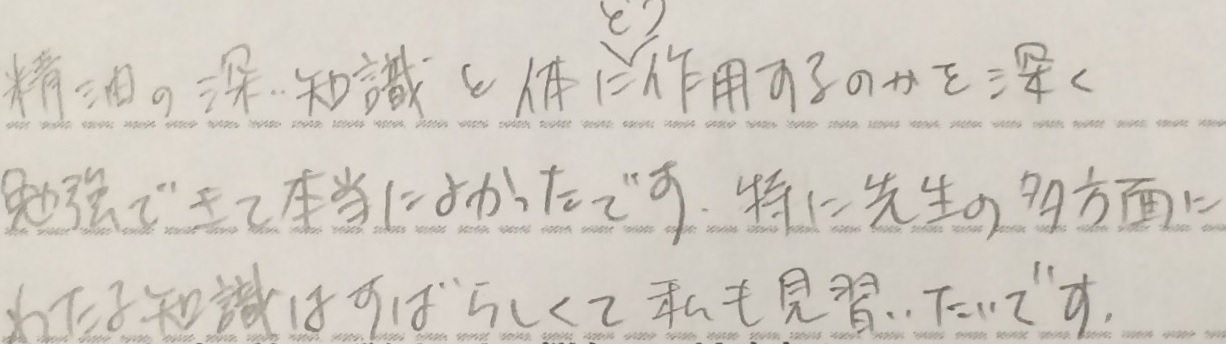 精油の深い知識と体にどう作用するのかを深く
勉強できて本当によかったです。特に先生の多方面に
わたる知識はすばらしくて私も見習いたいです。